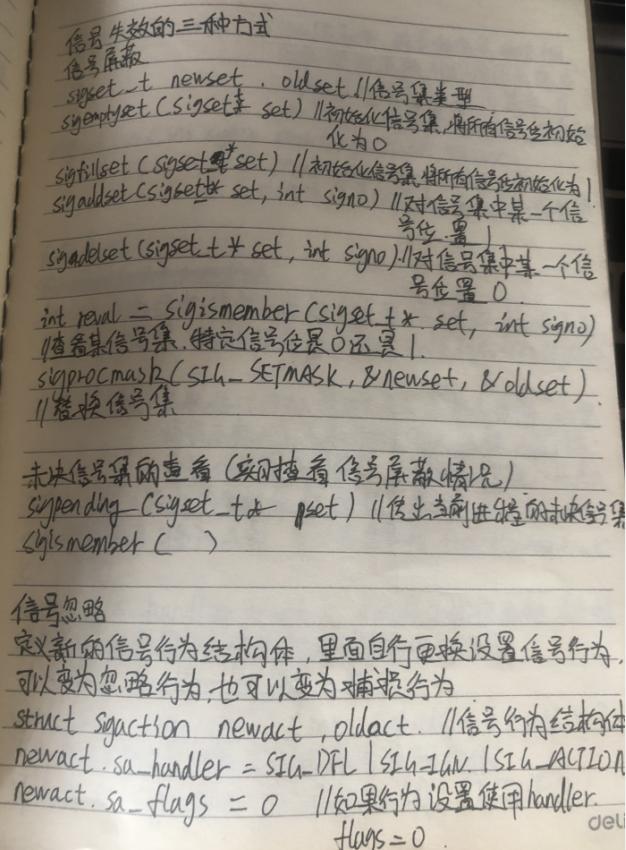 信号失效的三种方式
信号屏蔽
sigset_t newset, oldset //信号集类型
sigemptyset(sigset* set) //初始化信号集,将所有信号位初始
化为0
sigfillset(sigset_t* set) //初始化信号集,将所有信号位初始化为1
sigaddset(sigset_t* set, int signo) //对信号集中某一个信
号位置1
sigadelset(sigset_t* set, int signo) //对信号集中某一个信
号位置0.
int reval = sigismember(sigset_t* set, int signo)
//查看某信号集,特定信号位是0还是1.
sigprocmask(SIG_SETMASK, &newset, &oldset).
//替换信号集
未决信号集的查看(实时查看信号屏蔽情况)
sigpending(sigset_t* pset) //传出当前进程的未决信号集
sigismember( )
信号忽略
定义新的信号行为结构体,里面自行更换设置信号行为,
可以变为忽略行为,也可以变为捕捉行为
struct sgaction newact, oldact. //信号行为结构体
newact.sa_handler = SIG_DFL | SIG_IGN. | SIG_ACTION
newact.sa_flags = 0 //如果行为设置使用handler.
flags=0.
deli